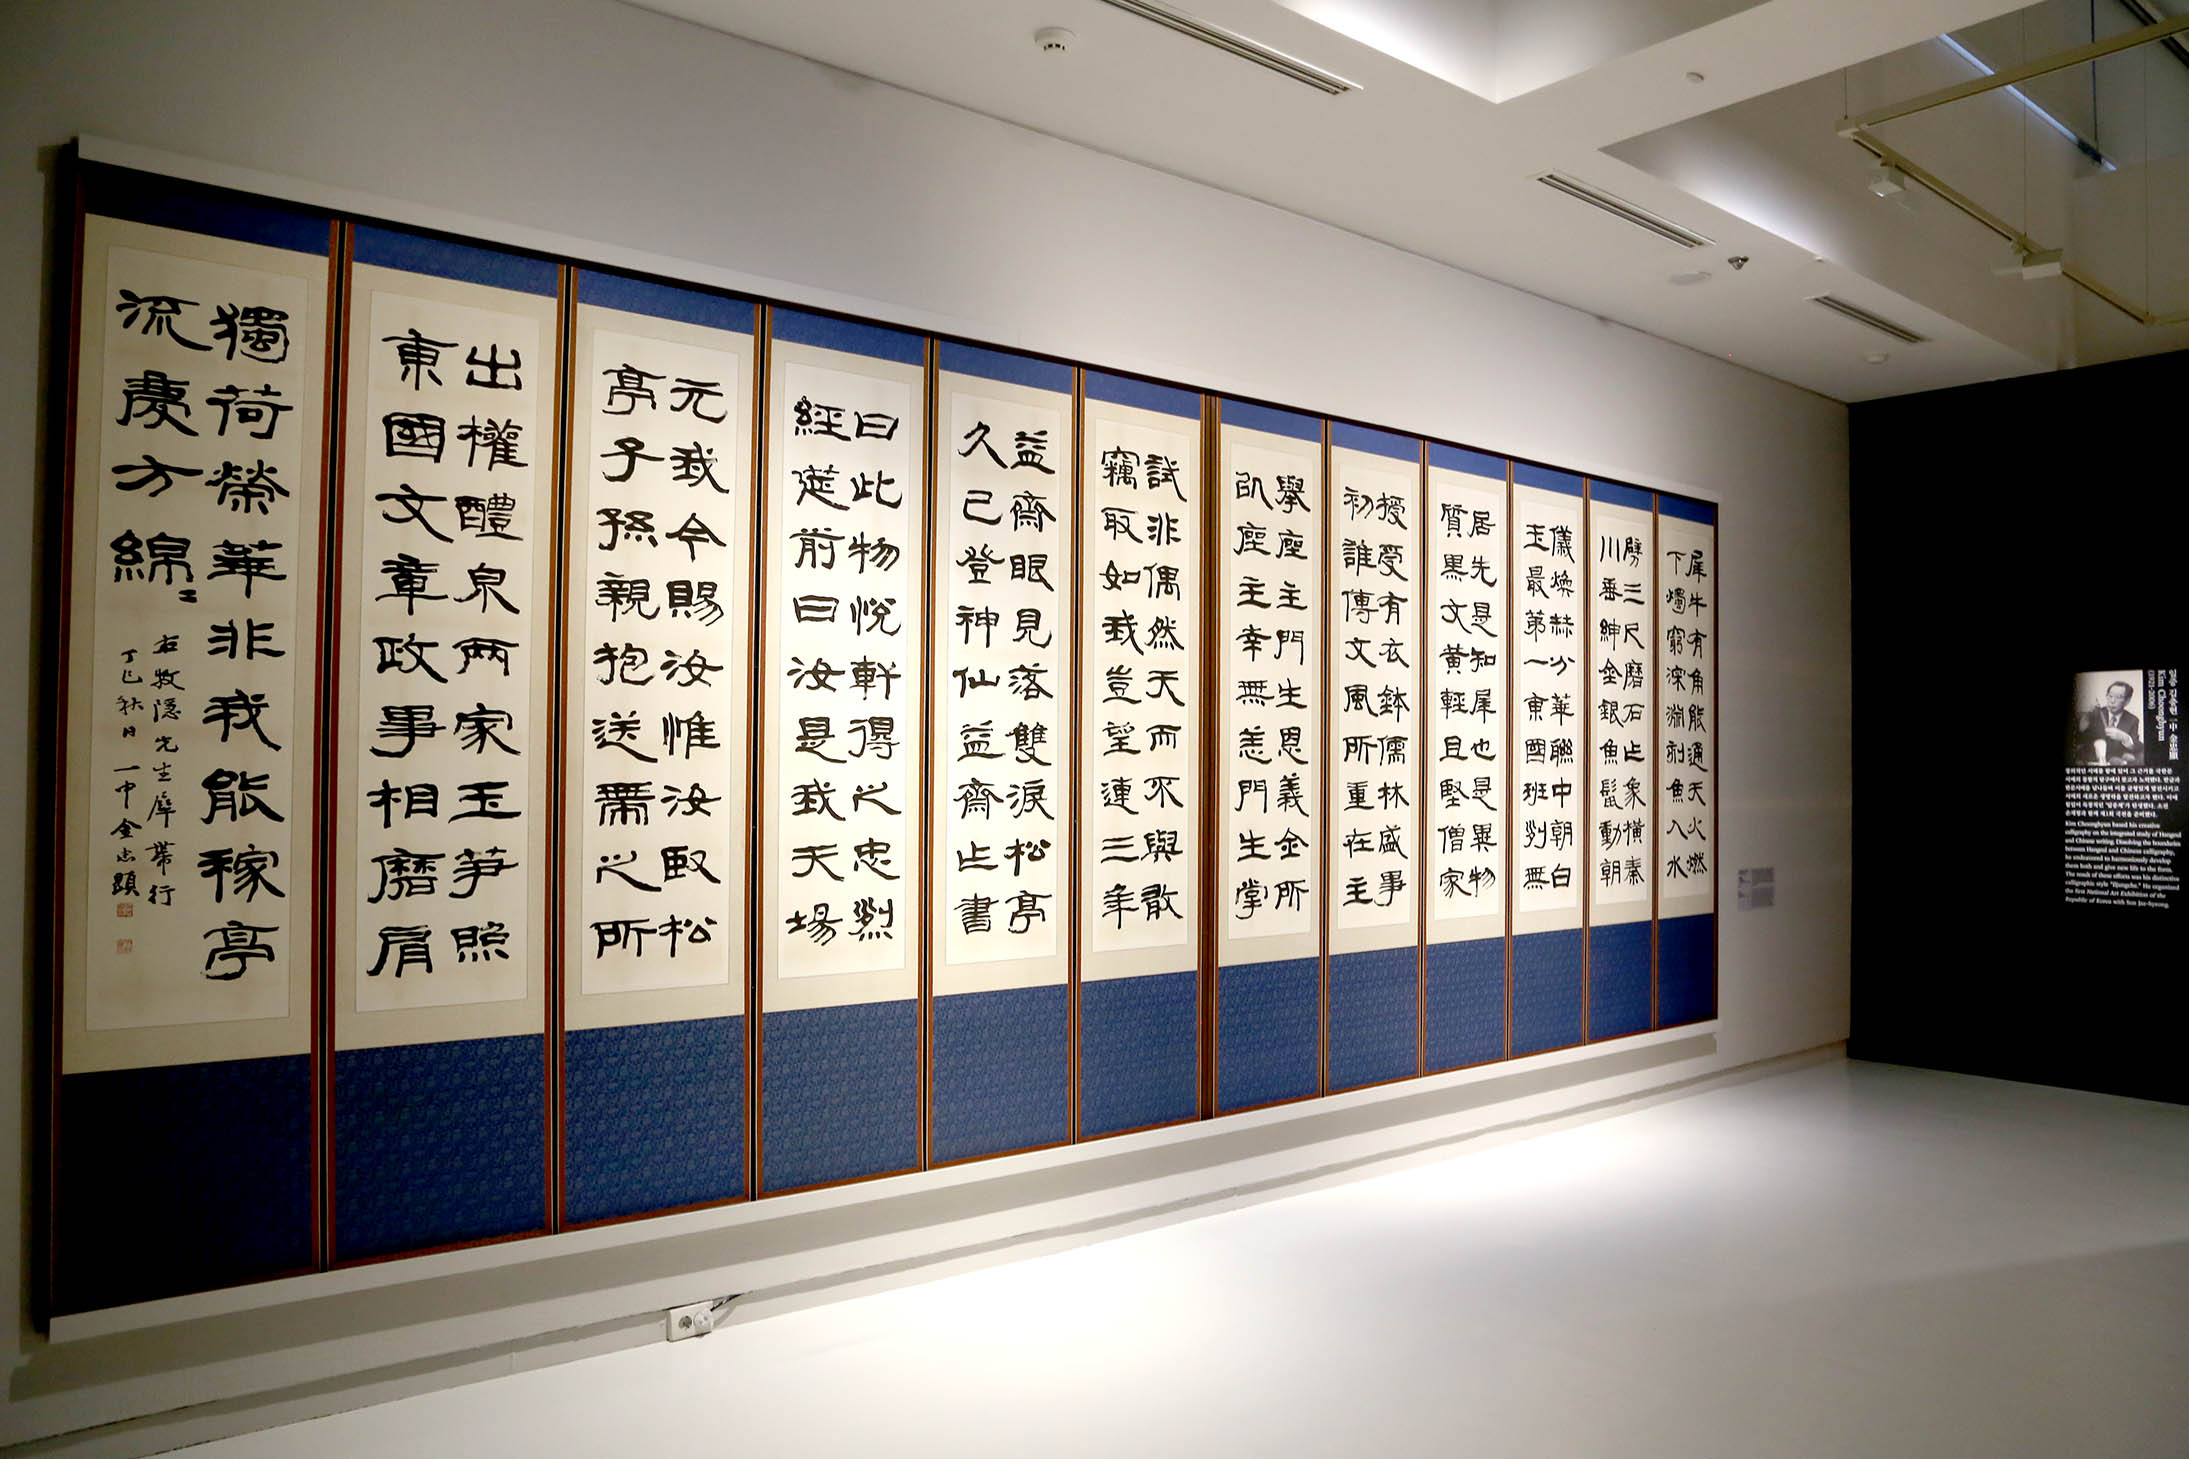 犀牛有角能通天火燃
下燭窮深淵刻魚入水
劈三尺磨石上象橫秦
川垂紳金銀魚髭動朝
儀煥赫分華聯中朝白
玉最第一東國班列無
居先是知犀也是異物
質黑文黃輕且堅僧家
授受有衣鉢儒林盛事
初誰傳文風所重在主
擧座主門生恩義金所
座主幸無恙門生掌
試非偶然天而不與敢
竊取如我豈望連三年
益齋眼見落雙淚松亭
久已登神仙益齋上書
曰此物悅軒得之忠烈
經筵前曰汝是我天場
元我今賜汝惟汝松
亭子孫親抱送之所
出權醴泉兩家玉笋照
東國文章政事相磨肩
獨荷榮華非我能稼亭
流慶方綿〻
右牧隱先生犀帶行
丁巳秋日 一中金忠顯
일중 김충현 一中 金忠顯
Kim Choonghyun
(1921-2006)
Kim Choonghyun based his creative
calligraphy on the integrated study of Hangeul
and Chinese writing. Dissolving the boundaries
between Hangeul and Chinese calligraphy,
he endeavored to harmoniously develop
them both and give new life to the form.
The result of these efforts was his distinctive
calligraphic style "Iljungche." He organized
the first National Art Exhibition of the
Republic of Korea with Son Jae-hyeong.